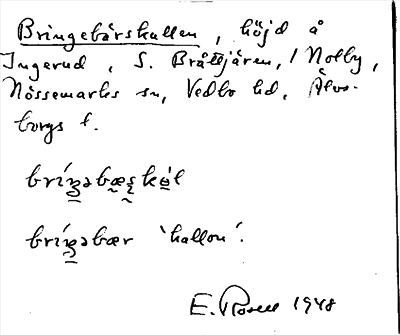 Bringebärskullen, höjd å
Ingerud, S. Bråttjären, i Nolby,
Nössemarks sn, Vedbo hd, Älvs-
borgs l.
bríŋəbæʂkùl
bríŋəbær 'hallon'.
E. Rosell 1948